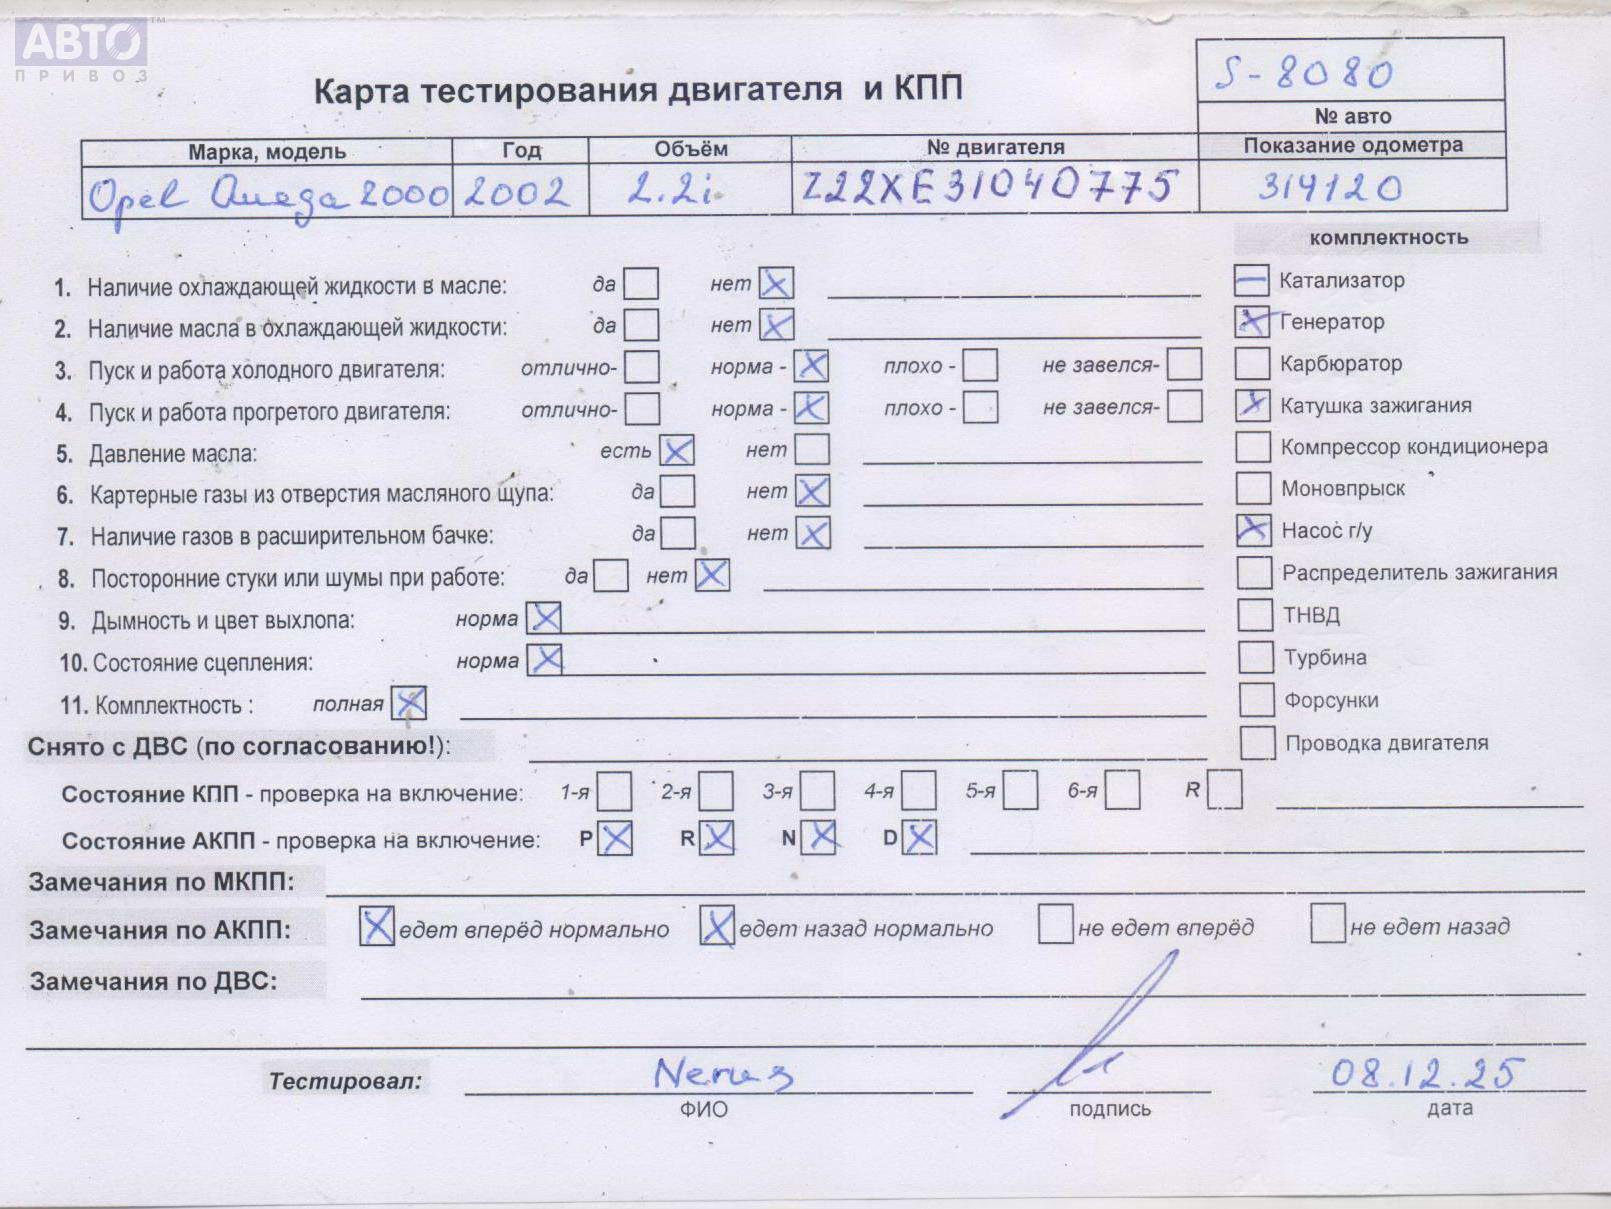 АВТО ™
ПРИВОЗ
Карта тестирования двигателя и КПП
S-8080
№ авто
Марка, модель Год Объём № двигателя Показание одометра
Opel Omega 2000 2002 2.2i Z22XE31040775 314120
комплектность
1. Наличие охлаждающей жидкости в масле: да нет X
2. Наличие масла в охлаждающей жидкости: да нет X
3. Пуск и работа холодного двигателя: отлично- норма - X плохо - не завелся-
4. Пуск и работа прогретого двигателя: отлично- норма - X плохо - не завелся-
5. Давление масла: есть X нет
6. Картерные газы из отверстия масляного щупа: да нет X
7. Наличие газов в расширительном бачке: да нет X
8. Посторонние стуки или шумы при работе: да нет X
9. Дымность и цвет выхлопа: норма X
10. Состояние сцепления: норма X
11. Комплектность : полная X
— Катализатор
X Генератор
Карбюратор
X Катушка зажигания
Компрессор кондиционера
Моновпрыск
X Насос г/у
Распределитель зажигания
ТНВД
Турбина
Форсунки
Проводка двигателя
Снято с ДВС (по согласованию!):
Состояние КПП - проверка на включение: 1-я 2-я 3-я 4-я 5-я 6-я R
Состояние АКПП - проверка на включение: P X R X N X D X
Замечания по МКПП:
Замечания по АКПП: X едет вперёд нормально X едет назад нормально не едет вперёд не едет назад
Замечания по ДВС:
Тестировал: 08.12.25
ФИО подпись дата